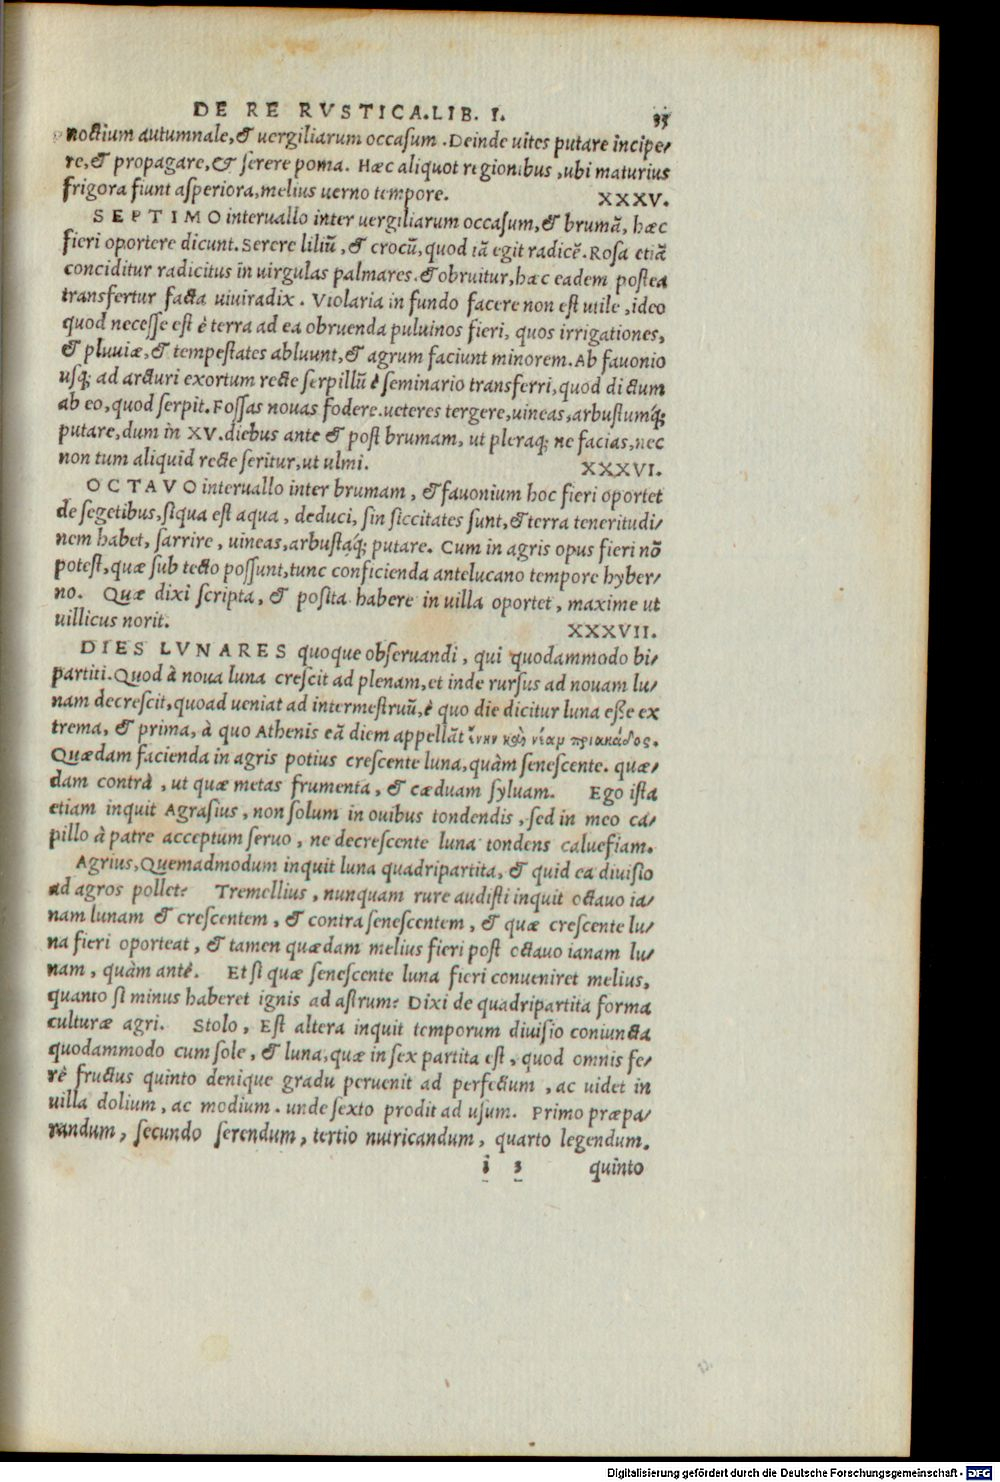 DE RE RVSTICA.LIB. I. 35
noctium autumnale, & uergiliarum occasum. Deinde uites putare incipe/
re, & propagare, & serere poma. Hæc aliquot regionibus, ubi maturius
frigora fiunt asperiora, melius uerno tempore. XXXV.
SEPTIMO interuallo inter uergiliarum occasum, & brumã, hæc
fieri oportere dicunt. Serere liliũ, & crocũ, quod iã egit radicẽ. Rosa etiã
conciditur radicitus in uirgulas palmares. & obruitur, hæc eadem postea
transfertur facta uiuiradix. Violaria in fundo facere non est utile, ideo
quod necesse est è terra ad ea obruenda puluinos fieri, quos irrigationes,
& pluuiæ, & tempestates abluunt, & agrum faciunt minorem. Ab fauonio
usq; ad arcturi exortum recte serpillũ è seminario transferri, quod dictum
ab eo, quod serpit. Fossas nouas fodere. ueteres tergere, uineas, arbustumq́;
putare, dum in XV. diebus ante & post brumam, ut pleraq; ne facias, nec
non tum aliquid recte seritur, ut ulmi. XXXVI.
OCTAVO interuallo inter brumam, & fauonium hoc fieri oportet
de segetibus, siqua est aqua, deduci, sin siccitates sunt, & terra teneritudi/
nem habet, sarrire, uineas, arbustaq́; putare. Cum in agris opus fieri nõ
potest, quæ sub tecto possunt, tunc conficienda antelucano tempore hyber/
no. Quæ dixi scripta, & posita habere in uilla oportet, maxime ut
uillicus norit. XXXVII.
DIES LVNARES quoque obseruandi, qui quodammodo bi/
partiti. Quod à noua luna crescit ad plenam, et inde rursus ad nouam lu/
nam decrescit, quoad ueniat ad intermestruũ, è quo die dicitur luna esse ex
trema, & prima, à quo Athenis eã diem appellãt ἕνην καὶ νέαμ πριακάδος.
Quædam facienda in agris potius crescente luna, quàm senescente. quæ/
dam contrà, ut quæ metas frumenta, & cæduam syluam. Ego ista
etiam inquit Agrasius, non solum in ouibus tondendis, sed in meo ca/
pillo à patre acceptum seruo, ne decrescente luna tondens caluefiam.
Agrius, Quemadmodum inquit luna quadripartita, & quid ea diuisio
ad agros pollet? Tremellius, nunquam rure audisti inquit octauo ia/
nam lunam & crescentem, & contra senescentem, & quæ crescente lu/
na fieri oporteat, & tamen quædam melius fieri post octauo ianam lu/
nam, quàm antè. Et si quæ senescente luna fieri conueniret melius,
quanto si minus haberet ignis ad astrum? Dixi de quadripartita forma
culturæ agri. Stolo, Est altera inquit temporum diuisio coniuncta
quodammodo cum sole, & luna, quæ in sex partita est, quod omnis fe/
rè fructus quinto denique gradu peruenit ad perfectum, ac uidet in
uilla dolium, ac modium. unde sexto prodit ad usum. Primo præpa/
randum, secundo serendum, tertio nutricandum, quarto legendum.
i 3 quinto
Digitalisierung gefördert durch die Deutsche Forschungsgemeinschaft - DFG